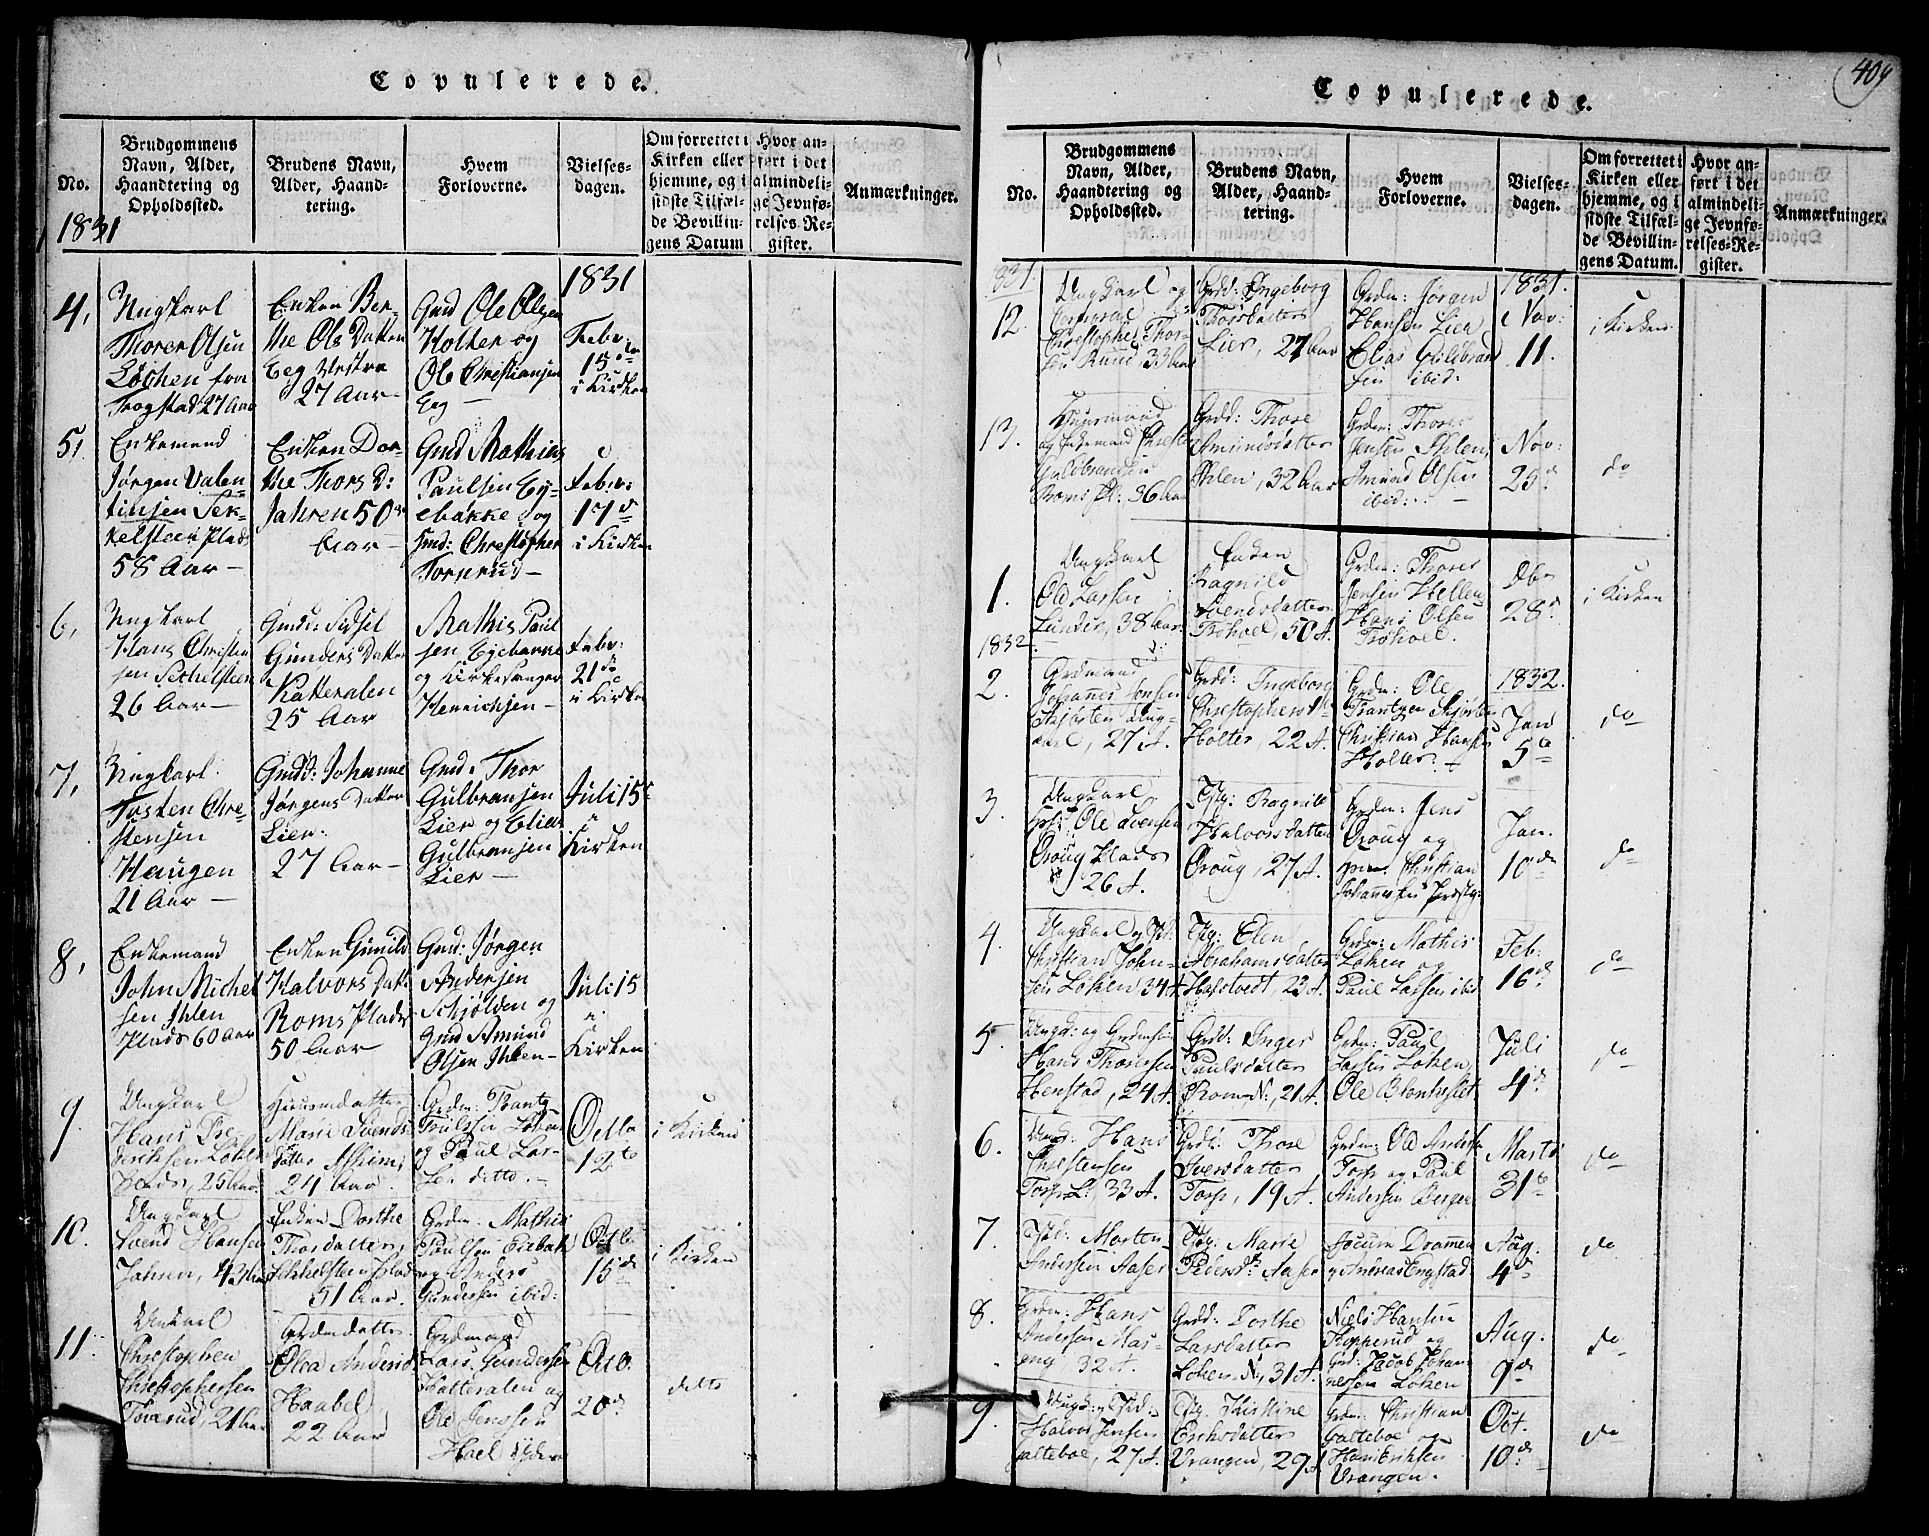 Copulerede.
No.
Brudgommens
Navn, Alder,
Haandtering og
Opholdssted.
Brudens Navn,
Alder, Haand-
tering.
Hvem
Forloverne.
Vielses-
dagen.
Om forrettet i
Kirken eller
hjemme, og i
sidste Tilfæl-
de Bevillin-
gens Datum
Hvor an-
ført i det
almindeli-
ge Jevnfø-
relses-Re-
gister.
Anmærkninger.
1831
1831
4,
Ungkarl
Thorer Olsen
Løchen fra
Trogstad 27 Aar
Enken Ber-
the Ols Datter
Eeg Vestre
27 Aar-
Gmd Ole Olsen
Holter og
Ole Christiansen
Eeg -
Febr.
15de
i Kirken
5,
Enkemand
Jørgen Valen-
tinsen Sek-
kelsteen Plads
58 Aar-
Enken Dor-
the Thors D:
Jahren 50
Aar-
Gmd Mathias
Paulsen Ey-
ebakke og
Gmd: Christopher
Tornrud-
Febr:
17d
i Kirken
6,
Ungkarl
Hans Christen
sen Sechelsteen
26 Aar-
Gmdd: Sidsel
Gunders Datter
Katteralen
25 Aar
Mathis Paul
sen Eyebakke
og Kirkesanger
Henrichsen-
Febr:
21de
i Kirken
7,
Ungkarl
Tosten Chri-
stensen
Haugen
21 Aar -
Gmdd: Johanne
Jørgens Datter
Lier.
27 Aar-
Gmd. Thor
Gulbransen
Lier og Elias
Gulbransen
Lier-
Juli 15
i
Kirken
8,
Enkemand
John Michel
sen Ihlen
Plads 60 Aar
Enken Gunild
Halvors Datt
Roms Plads
50 Aar
Gmd: Jørgen
Andersen
Schjølden og
Gmd Amund
Olsen Ihlen-
Juli 15
i
Kirken
9.
Ungkarl
Hans Dre-
derichsen Løken
25 Aar.
Huusmdatter
Marie Svends
datter Askim,
24 Aar.
Grdm: Trantz
Truelssen Løken
og Paul Lar-
sen ditto.-
Octb
12te
i Kirken
10.
Ungkarl
Svend Hansen
Jahren, 43 Aar
Enken Dorthe
Thorsdatter,
Sekkelsteen Plad
51 Aar.
Grdm: Mathis
Paulsen Eiebak
og Anders
Gundersen ibid:
Octb.
15de
i Kirken
11.
Unkarl
Christophen
Christophersen
Tonrud, 21 Aar
Grdmdatter
Olea Andersd
Haabel,
22 Aar
Grdmand
Lars Gundersen
Katteralen og
Ole Jenssen
Hoel Ydere
Octb.
20de
ditto
409
Copulerede.
No.
Brudgommens
Navn, Alder,
Haandtering og
Opholdssted.
Brudens Navn,
Alder, Haand-
tering.
Hvem
Forloverne.
Vielses-
dagen.
Om forrettet i
Kirken eller
hjemme, og i
sidste Tilfæl-
de Bevillin-
gens Datum.
Hvor an-
ført i det
almindeli-
ge Jevnfø-
relses-Re-
gister.
Anmærkninger.
1831.
1831.
12.
Ungkarl og
Corporal
Christopher Thor-
sen Ruud 33 Aar
Grdd: Ingeborg
Thorsdatter
Lier, 27 Aar
Grdm: Jørgen
Hansen Lien
Elias Guldbrand
sen ibid:
Nov:
11.
i Kirken
13.
Huusmand
og Enkemand Christen
Guldbrandsen
Roms Pl: 36 Aar
Grdd: Thore
Amundsdatter
Ihlen, 32 Aar
Grdm: Thorer
Jensen Ihlen,
Amund Olsen
ibid:
Nov:
25d
do
1.
Ungkarl
Ole Larsen
Lunder, 38 Aar.
Enken
Ragnild
Svendsdatter
Trøhoel, 50 A.
Grdm: Thorer
Jensen Hellen
Hans Olsen
Trøhoel.
Dbr
28d
i Kirken
1832.
1832.
2.
Grdmand
Johannes Jensen
Skjørten Ung-
karl, 27 A.
Grdd: Ingeborg
Christophersd
Holter, 22 A.
Grdm: Ole
Trantzen Skjørten
Christian Hansen
Holter.
Jan
5te
do
3.
Ungkarl
Ole Svensen
Oroug Plads
26 A.
Tjp: Ragnild
Halvorsdatter
Oroug, 27 A.
Grdm: Jens
Oroug og
Christian
Johannesen
Jan.
10de
do
4.
Ungkarl og
Christian John-
sen Løken 34 A
Tjp: Elen
Abrahamsdatter
Hafstvedt, 23 A.
Grdm: Mathis
Løken og
Paul Larsen ibid
Feb:
16de
do
5.
Ungk: og Grdmsøn
Hans Thoresen
Henstad, 24 A
Grdd: Inger
Paulsdatter
Rom N:, 21 A.
Grdm: Paul
Larsen Løken,
Ole Blankesleet
Juli
4de
do
6.
Ungk: Hans
Christensen
Torp L:, 33 A.
Grdd: Thore
Iversdatter
Torp, 19 A.
Grdm: Ole Anders
Torp og Paul
Andersen Berger
Marts
31te
do
7.
Morten
Andersen Aaser
Tjp: Marie
Pedersd. Aaser
Jocum Dramen
Andreas Engstad
Aug.
4de
do
8.
Grdm: Hans
Andersen Mar-
eng, 32 A.
Grdd: Dorthe
Larsdatter
Løken N, 31 A.
Niels Hansen
Kopperud og
Grd: Jacob Johan-
nessen Løken
Aug.
9de
do
9.
Halvor Jensen
Galteboe, 27 A.
Tjp. Kirstine
Erichsdatter
Vrangen, 29 A
Grdm: Christian
Galteboe og
Hans Eriksen
Vrangen.
Oct.
10de
do